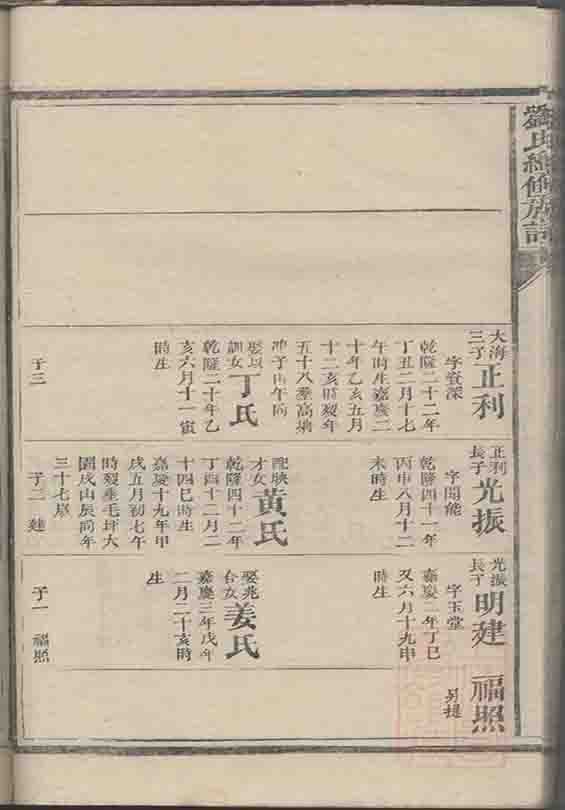 劉氏續修族譜
大海
三子
正利
字資深
乾隆二十二年
丁丑二月十七
午時生嘉慶二
十年乙亥五月
十二亥時歿年
五十八塟高塘
冲子山午向
娶以
訓女
丁氏
乾隆二十年乙
亥六月十一寅
時生
子三
正利
長子
光振
字開能
乾隆四十一年
丙申八月十二
未時生
配映
才女
黃氏
乾隆四十二年
丁酉十二月二
十四巳時生
嘉慶十九年甲
戌五月初七午
時歿塟毛坪大
園戌山辰向年
三十七歲
子二 建
光振
長子
明建
字玉堂
嘉慶二年丁巳
又六月十九申
時生
娶兆
台女
姜氏
嘉慶三年戊午
二月二十亥時
生
子一 福照
福照
另提